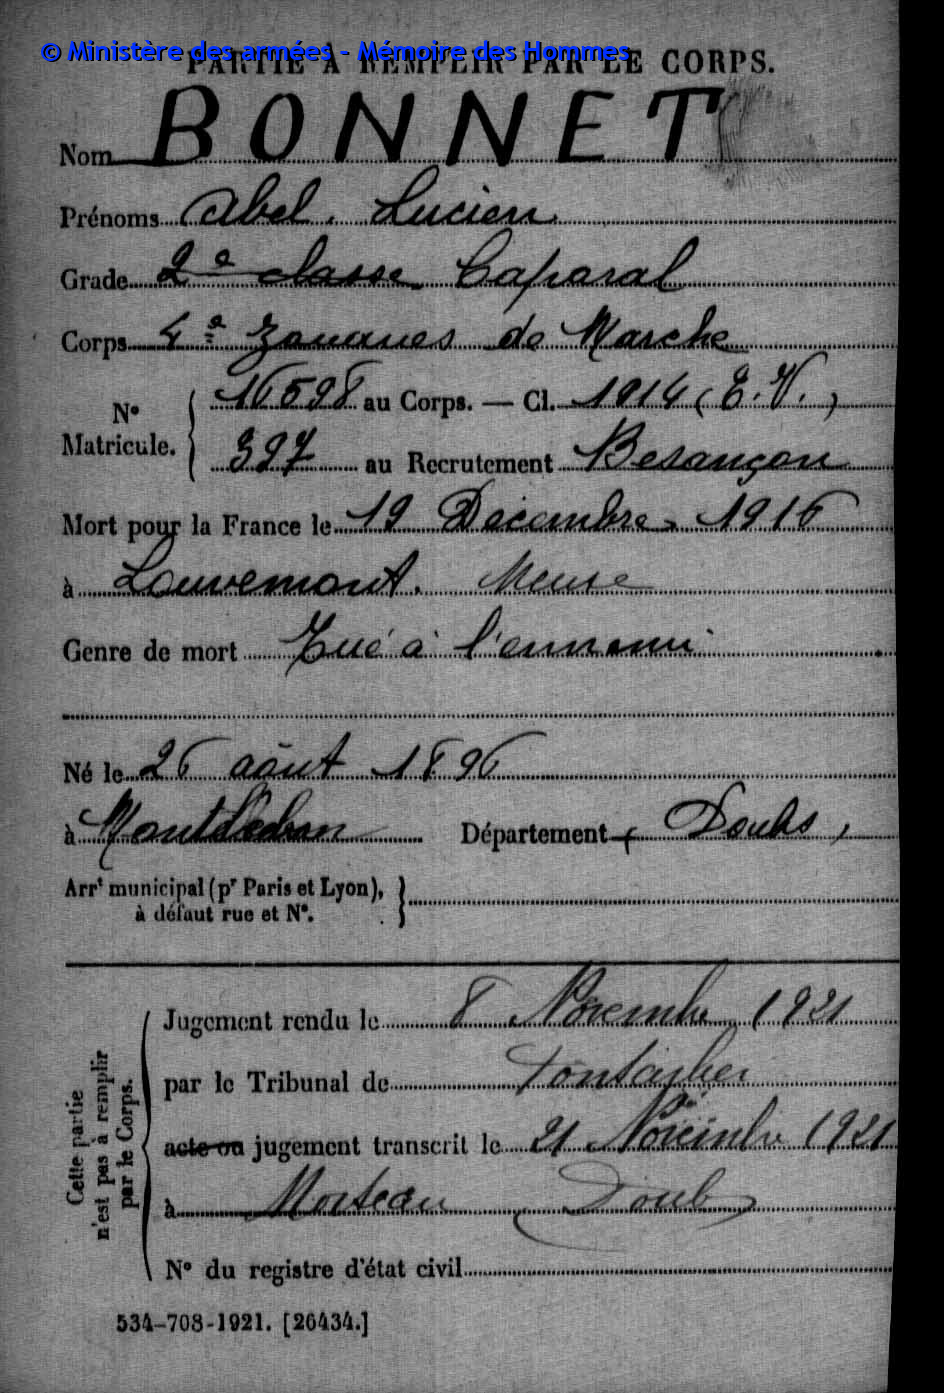 © Ministère des armées - Mémoire des Hommes
PARTIE À REMPLIR PAR LE CORPS.
Nom BONNET
Prénoms Abel Lucien
Grade 2e classe Caporal
Corps 4e Zouaves de Marche
N° Matricule. { 16598 au Corps. — Cl. 1914 (E.V.)
397 au Recrutement Besançon
Mort pour la France le 19 Décembre 1916
à Louvemont. Meuse
Genre de mort Tué à l'ennemi
Né le 26 août 1896
à Département ( Doubs )
Arrt municipal (pr Paris et Lyon), }
à défaut rue et N°.
Cette partie
n'est pas à remplir
par le Corps.
Jugement rendu le 8 Novembre 1921
par le Tribunal de Pontarlier
acte ou jugement transcrit le 21 Novembre 1921
à Morteau (Doubs)
N° du registre d'état civil
534-708-1921. [26434.]